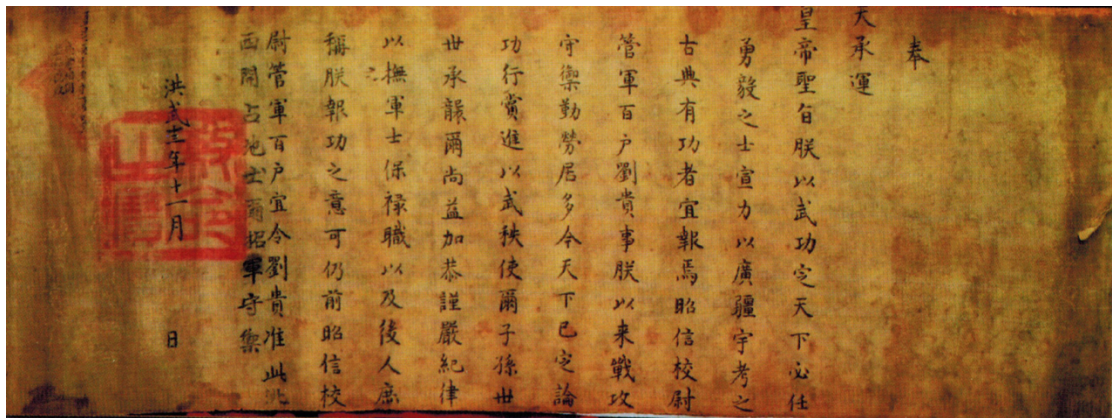 奉
天承運
皇帝聖旨朕以武功定天下必任
勇毅之士宣力以廣疆宇考之
古典有功者宜報焉昭信校尉
管軍百戶劉貴事朕以来戰攻
守禦勤勞居多今天下已定論
功行賞進以武秩使爾子孫世
世承襲爾尚益加恭謹嚴紀律
以撫軍士保禄職以及後人庶
之
稱朕報功之意可仍前昭信校
尉管軍百戶宜令劉貴准此
西開占池土爾招軍守禦
洪武十一月
日